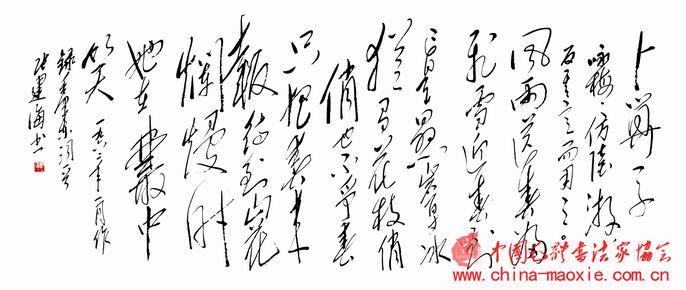 卜算子
咏梅·仿陆游
反其意而用之。
风雨送春归
飞雪迎春到
已是悬崖百丈冰
犹有花枝俏
俏也不争春
只把春来
报待到山花
烂漫时
她在丛中
笑
录毛泽东词
中国毛体书法家协会
www.china-maoxie.com.cn